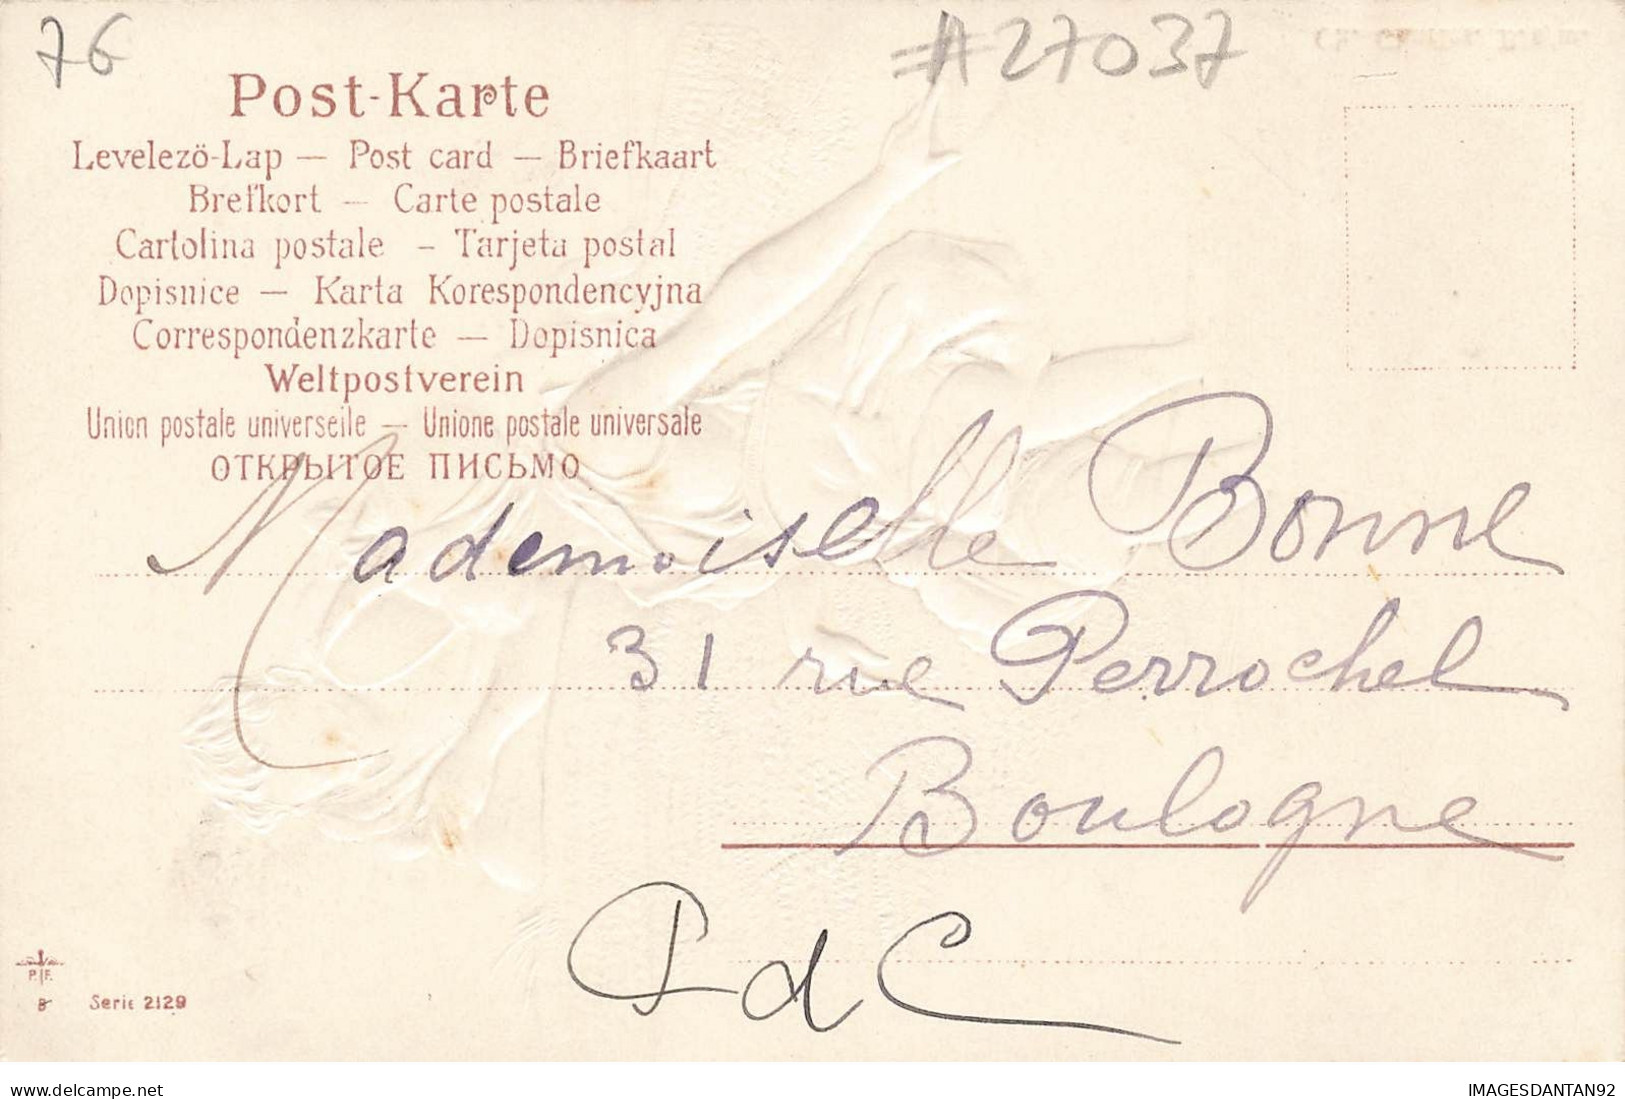 76
#27037
Post-Karte
Levelezö-Lap — Post card — Briefkaart
Brefkort — Carte postale
Cartolina postale – Tarjeta postal
Dopisnice — Karta Korespondencyjna
Correspondenzkarte — Dopisnica
Weltpostverein
Union postale universelle — Unione postale universale
ОТКРЫТОЕ ПИСЬМО
Mademoiselle Bonne
31 rue Perrochel
Boulogne
P d C
P.F.
B Serie 2129
delcampe.net
IMAGESDANTAN92